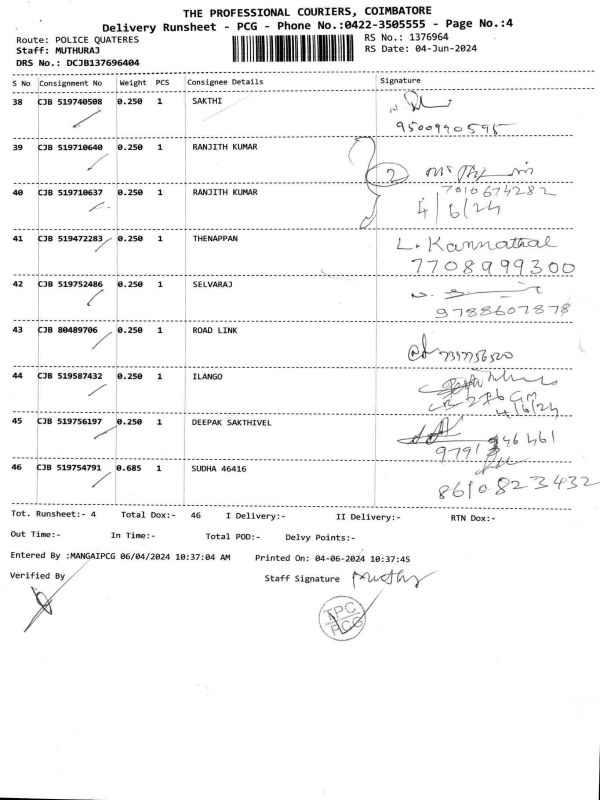 THE PROFESSIONAL COURIERS, COIMBATORE
Delivery Runsheet - PCG - Phone No.:0422-3505555 - Page No.:4
Route: POLICE QUATERES RS No.: 1376964
Staff: MUTHURAJ RS Date: 04-Jun-2024
DRS No.: DCJB137696404
S No Consignment No Weight PCS Consignee Details Signature
38 CJB 519740508 0.250 1 SAKTHI
9500990595
39 CJB 519710640 0.250 1 RANJITH KUMAR
2
40 CJB 519710637 0.250 1 RANJITH KUMAR 7010674282
4/6/24
41 CJB 519472283 0.250 1 THENAPPAN L. Kannathal
7708999300
42 CJB 519752486 0.250 1 SELVARAJ
9788607878
43 CJB 80489706 0.250 1 ROAD LINK
44 CJB 519587432 0.250 1 ILANGO
4/6/24
45 CJB 519756197 0.250 1 DEEPAK SAKTHIVEL
46 CJB 519754791 0.685 1 SUDHA 46416
8610823432
Tot. Runsheet:- 4 Total Dox:- 46 I Delivery:- II Delivery:- RTN Dox:-
Out Time:- In Time:- Total POD:- Delvy Points:-
Entered By :MANGAIPCG 06/04/2024 10:37:04 AM Printed On: 04-06-2024 10:37:45
Verified By Staff Signature
TPC
PCG